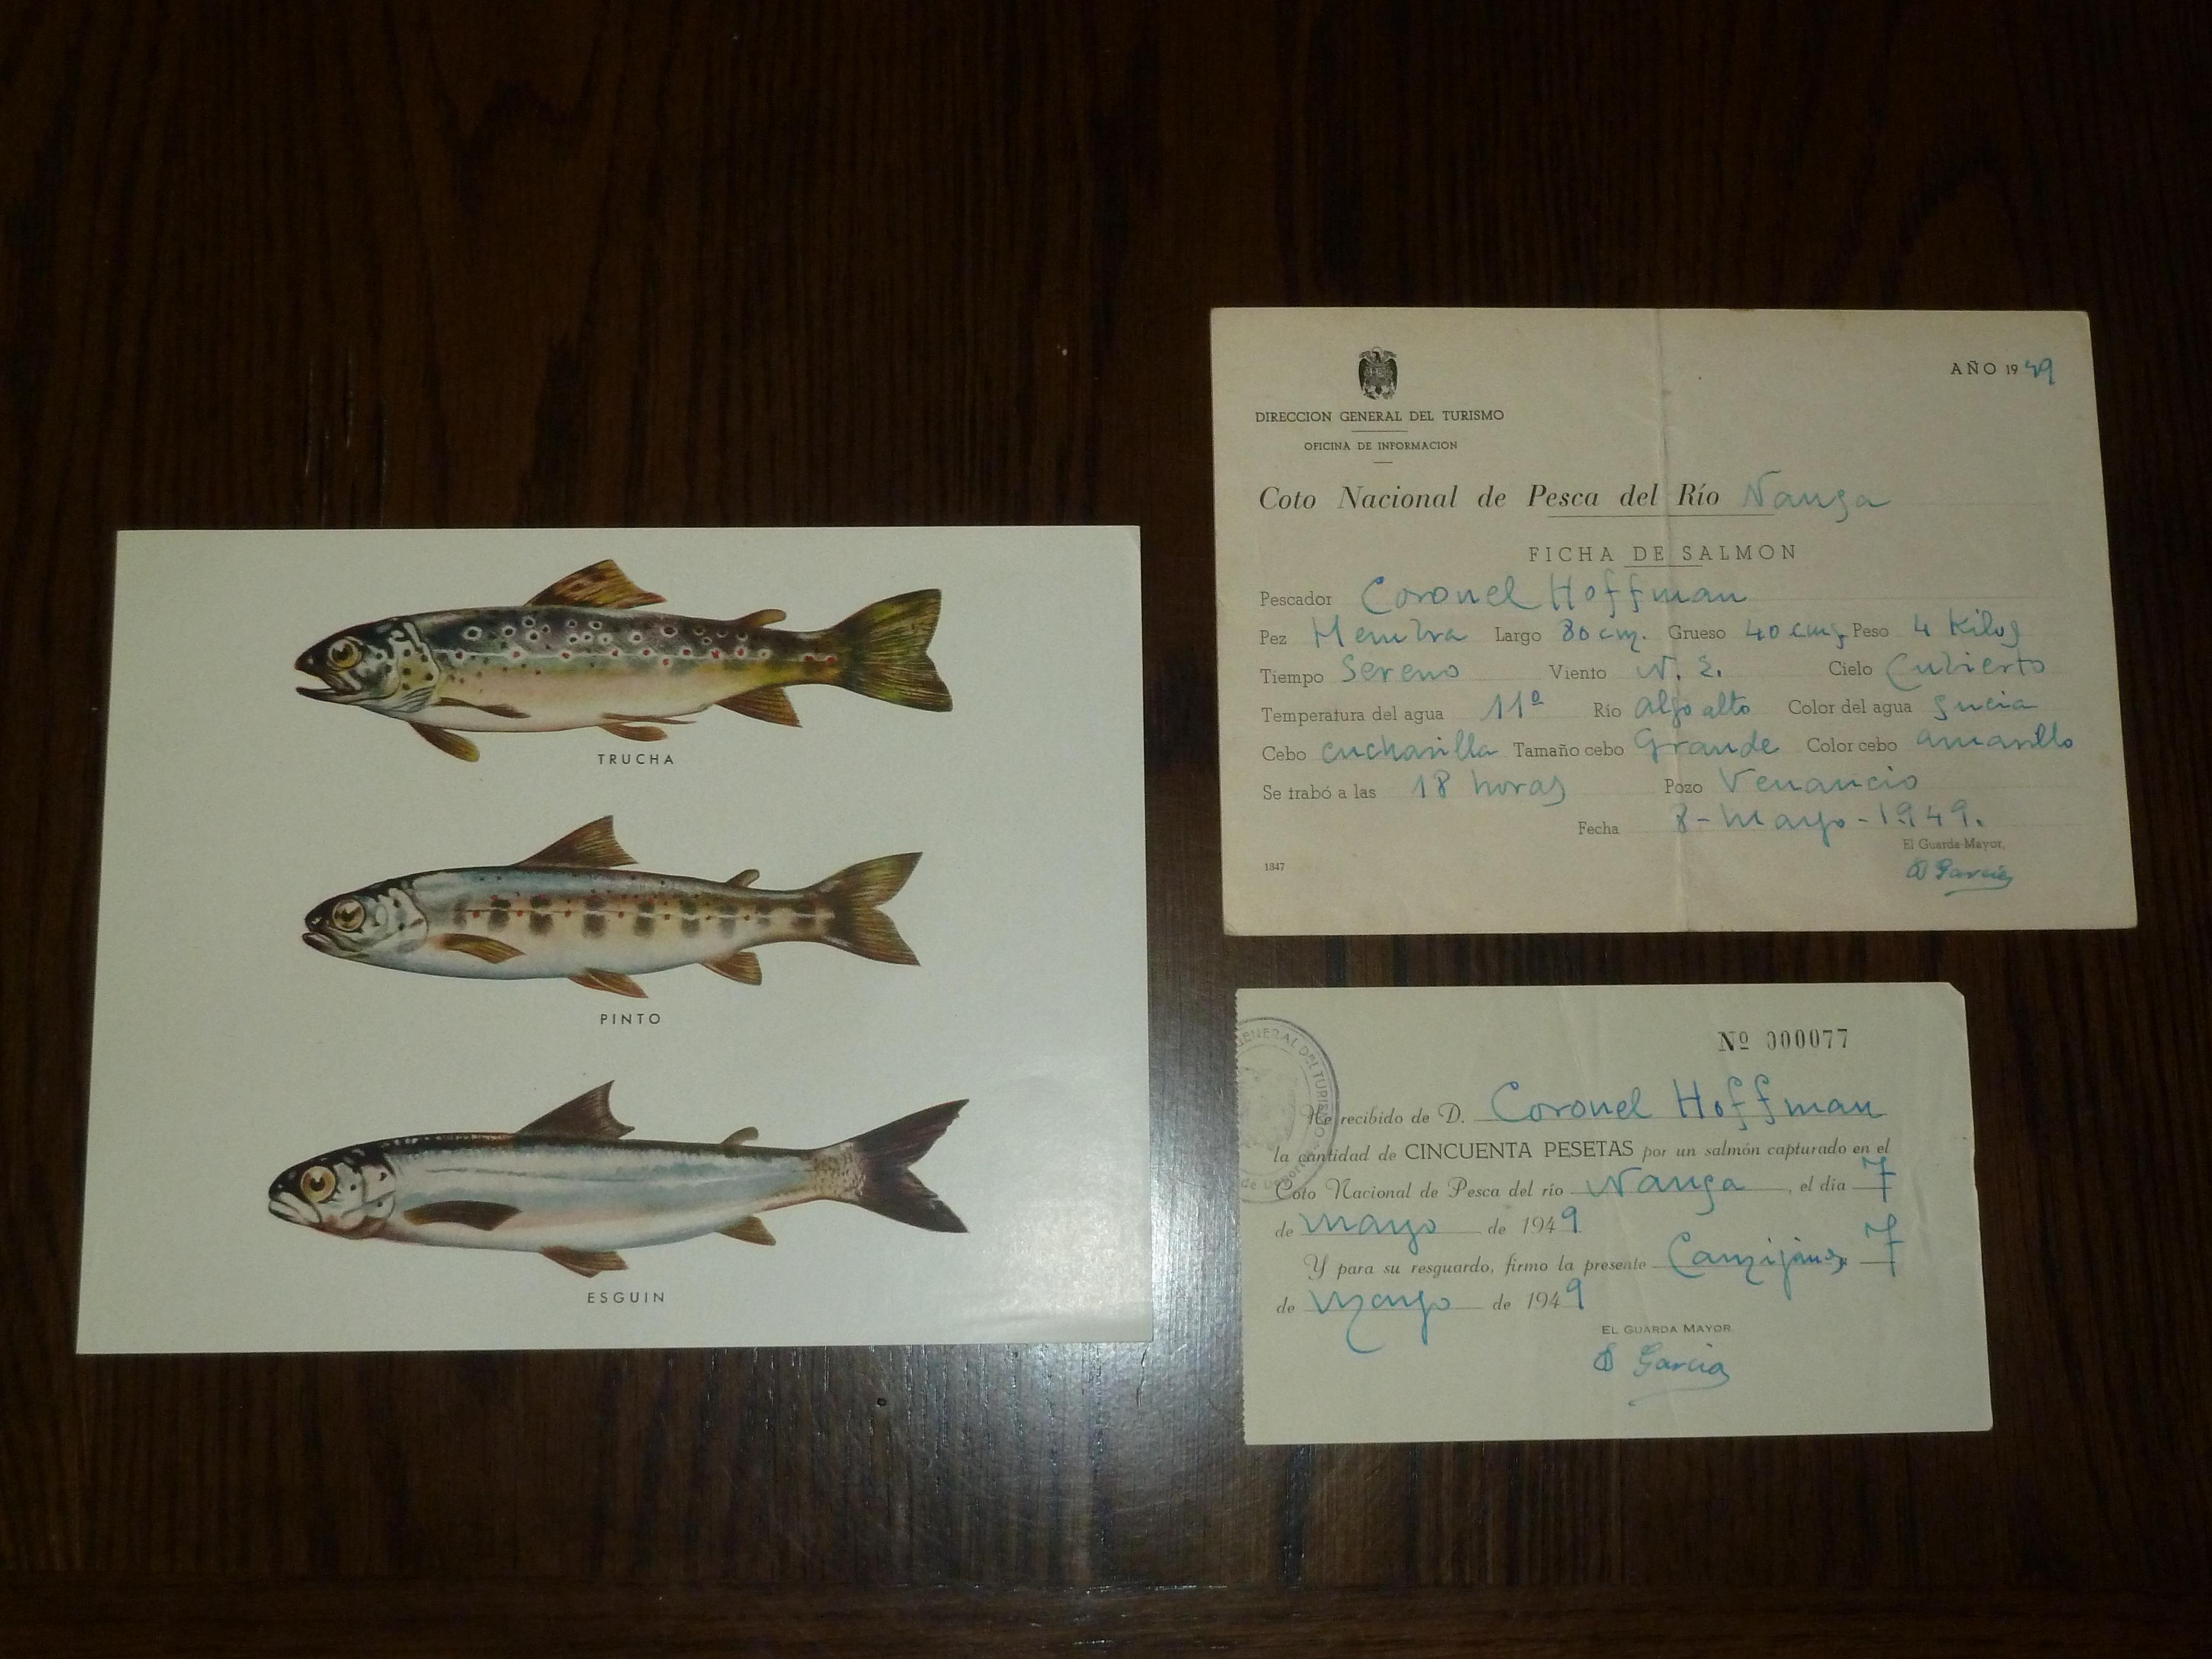 TRUCHA
PINTO
ESGUIN
AÑO 1949
DIRECCION GENERAL DEL TURISMO
OFICINA DE INFORMACION
Coto Nacional de Pesca del Río Nansa
FICHA DE SALMON
Pescador Coronel Hoffman
Pez Hembra Largo 80 cm. Grueso 40 cm. Peso 4 Kilos
Tiempo Sereno Viento N. E. Cielo Cubierto
Temperatura del agua 11º Río algo alto Color del agua sucia
Cebo cucharilla Tamaño cebo Grande Color cebo amarillo
Se trabó a las 18 horas Pozo Venancio
Fecha 8-mayo-1949.
El Guarda Mayor,
García
1347
Nº 000077
GENERAL DEL TURISMO
He recibido de D. Coronel Hoffman
la cantidad de CINCUENTA PESETAS por un salmón capturado en el
Coto Nacional de Pesca del río Nansa, el día 7
de mayo de 1949
Y para su resguardo, firmo la presente 7
de mayo de 1949
EL GUARDA MAYOR
García